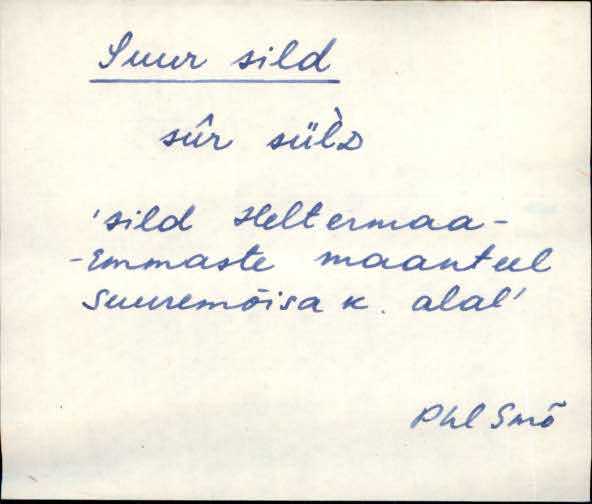 Suur sild
sûr sül̀D
'sild Heltermaa-
-Emmaste maanteel
Suuremõisa k. alal'
Phl Smõ